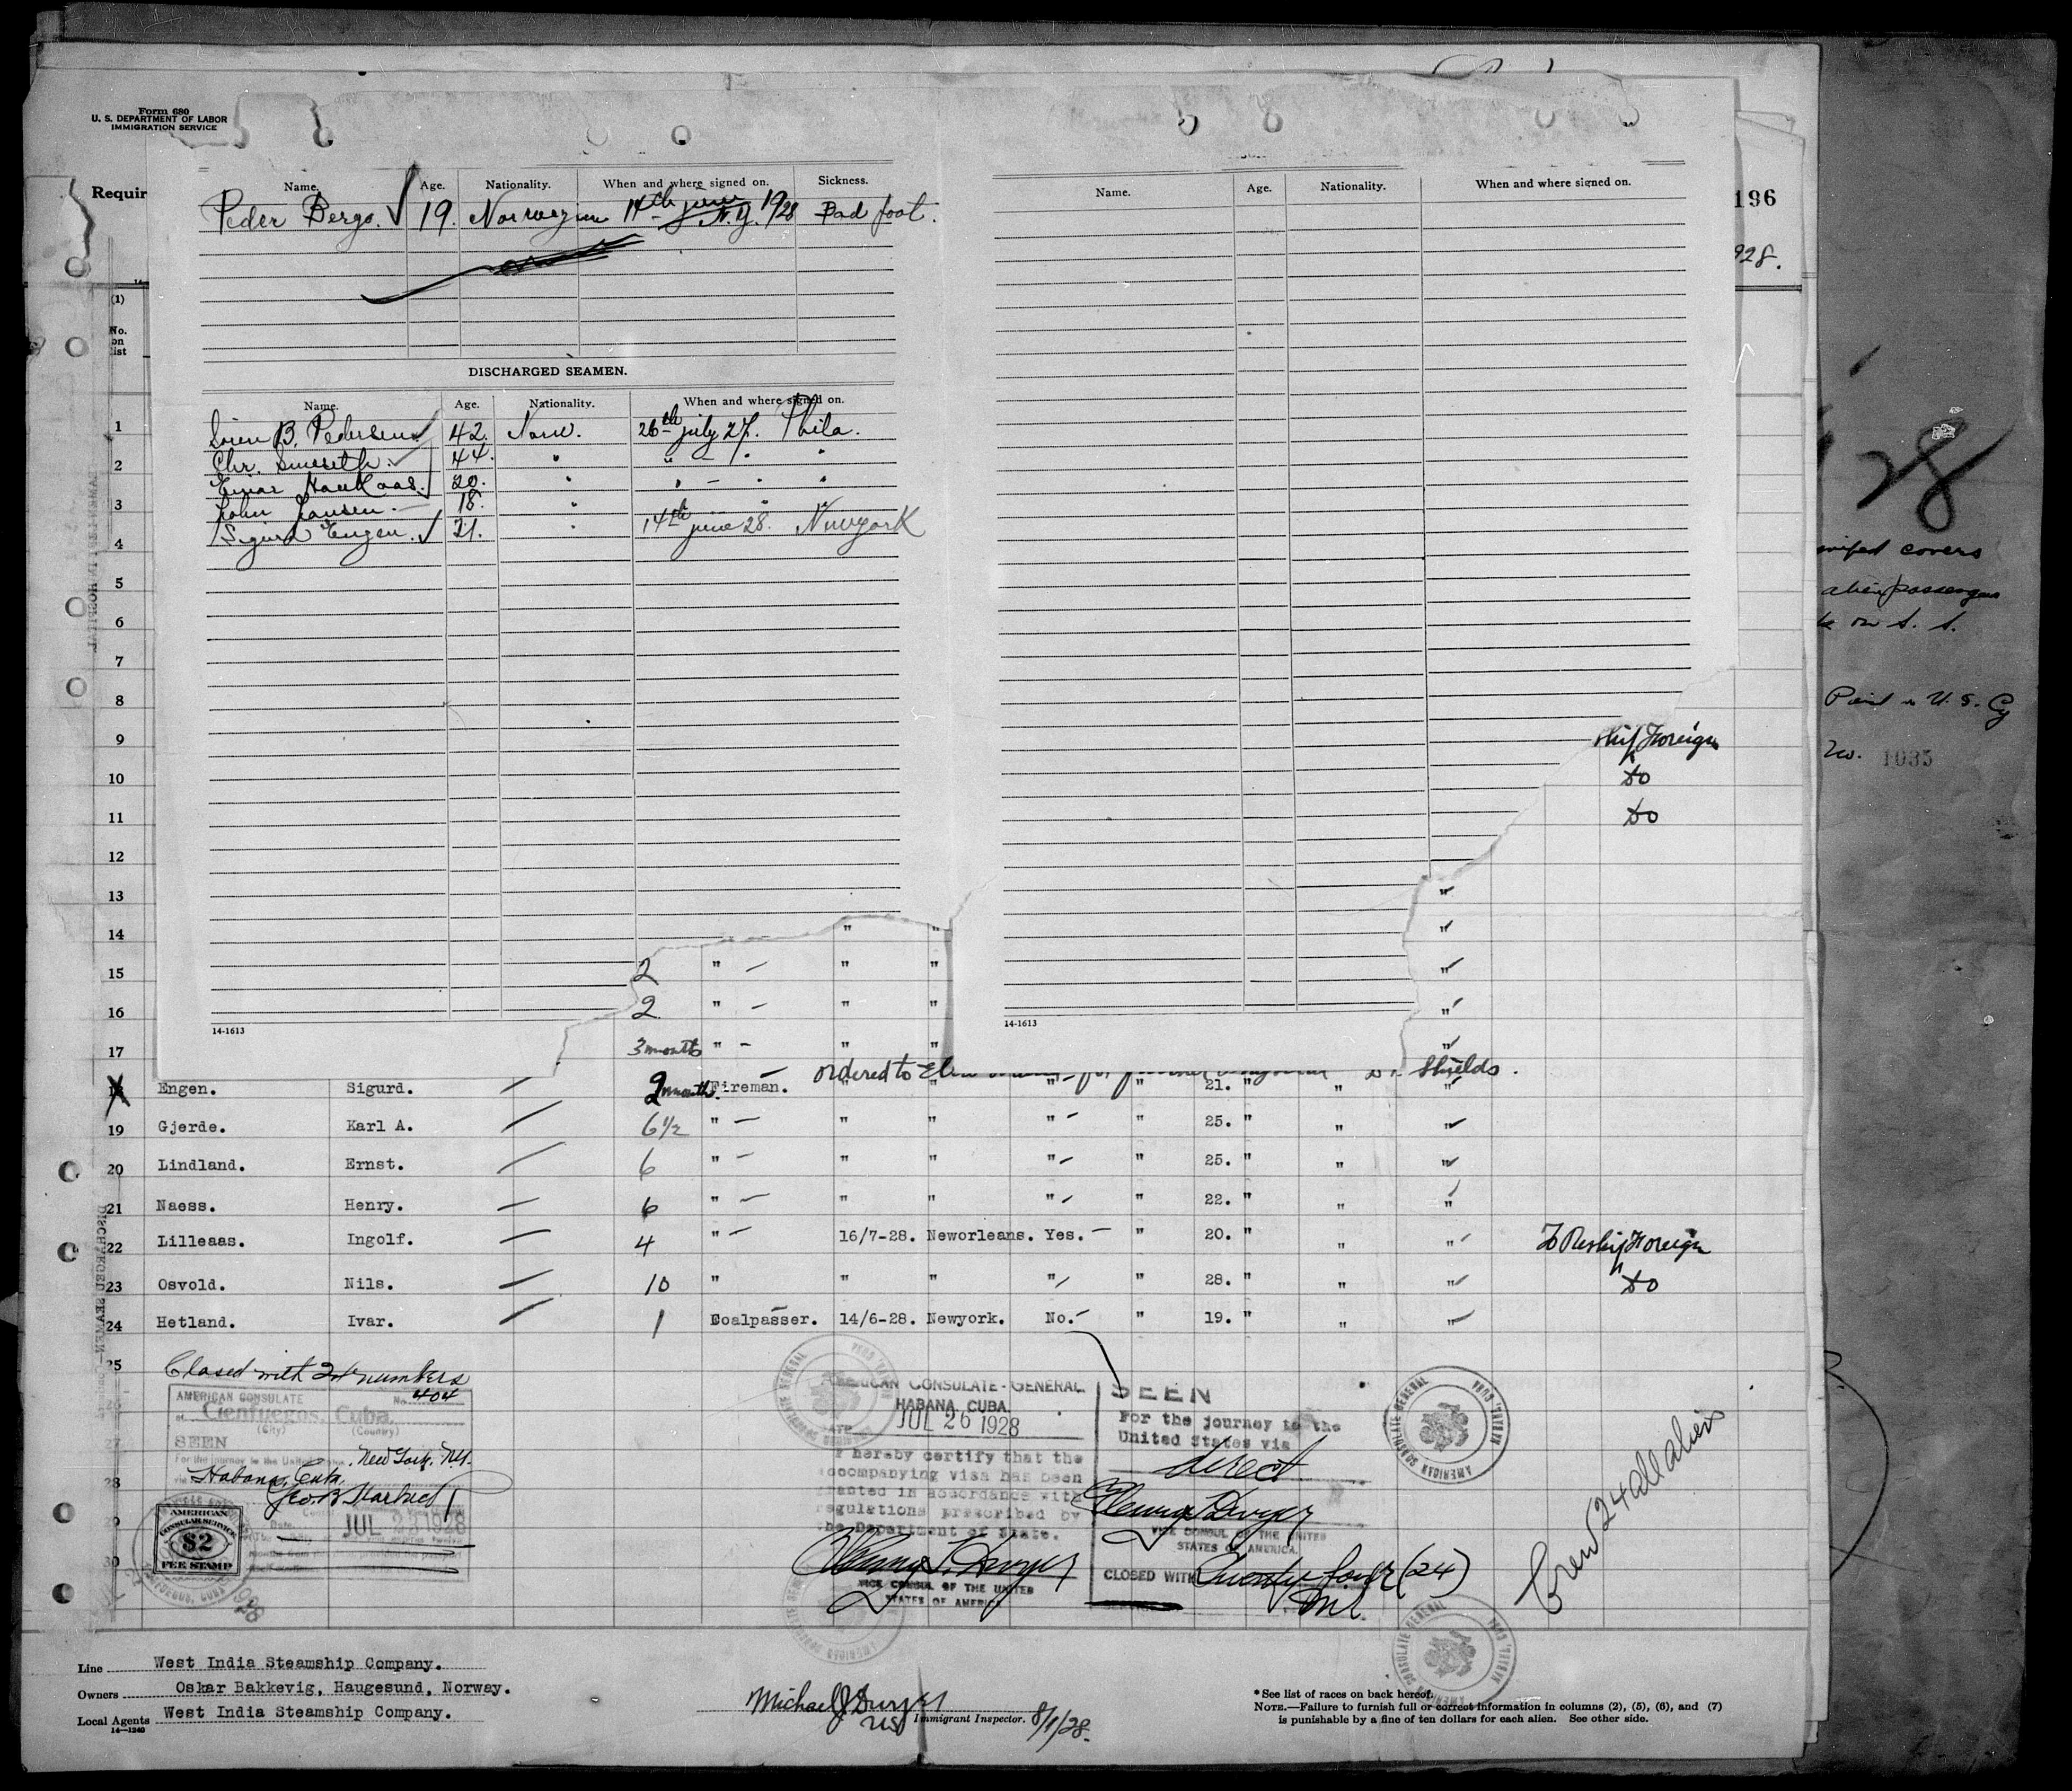 Form 680
U. S. DEPARTMENT OF LABOR
IMMIGRATION SERVICE
Requir
196
928.
(1)
No. on list
Name. Age. Nationality. When and where signed on. Sickness.
Peder Bergo. 19. Norwegian 14th june N.Y. 1928 Bad foot.
DISCHARGED SEAMEN.
Name. Age. Nationality. When and where signed on.
Sören B. Pedersen 42. Norw. 26th july 27. Phila.
Chr. 44. " " - " "
Einar Haukaas. 20. " " - " "
John Hansen. 18. " "
Sigurd Engen. 21. " 14th june 28. Newyork
14-1613
Name. Age. Nationality. When and where signed on.
14-1613
1
2
3
4
5
6
7
8
9 ship Foreign
10 do
11 do
12
13 "
14 " " "
15 2 " — " " "
16 2 " — " " "
17 3 months " — " " "
ordered to Shields.
18 Engen. Sigurd. 2 months Fireman. " " " " 21. " " "
19 Gjerde. Karl A. 6 1/2 " " " " " 25. " " "
20 Lindland. Ernst. 6 " " " " " 25. " " "
21 Naess. Henry. 6 " " " " " 22. " " "
22 Lilleaas. Ingolf. 4 " 16/7-28. Neworleans. Yes. " 20. " " " To Reship Foreign
23 Osvold. Nils. 10 " " " " " 28. " " " do
24 Hetland. Ivar. 1 Coalpasser. 14/6-28. Newyork. No. " 19. " " "
25
27
28
29
30
Closed with 24 numbers
AMERICAN CONSULATE No. 404
at Cienfuegos, Cuba.
(City) (Country)
SEEN
For the journey to the United States
via Habana, Cuba. New York, N.Y.
Geo. B. Starbuck
JUL 23 1928
AMERICAN
CONSULAR SERVICE
$2
FEE STAMP
AMERICAN CONSULATE-GENERAL
HABANA, CUBA.
JUL 26 1928
I hereby certify that the
accompanying visa has been
granted in accordance with
regulations prescribed by
the Department of State.
VICE CONSUL OF THE UNITED
STATES OF AMERICA
SEEN
For the journey to the
United States via
direct
VICE CONSUL OF THE UNITED
STATES OF AMERICA.
CLOSED WITH Twenty four (24)
AMERICAN CONSULATE GENERAL HABANA, CUBA
AMERICAN CONSULATE GENERAL HABANA, CUBA
Crew 24 all aliens
Line West India Steamship Company.
Owners Oskar Bakkevig, Haugesund, Norway.
Local Agents West India Steamship Company.
14-1240
Michael J Dwyer
Immigrant Inspector. 8/1/28.
* See list of races on back hereof.
NOTE.—Failure to furnish full or correct information in columns (2), (5), (6), and (7)
is punishable by a fine of ten dollars for each alien. See other side.
DISCHARGED SEAMEN
28
covers
alien passengers
on S. S.
Paid in U. S. Cy
No. 1035